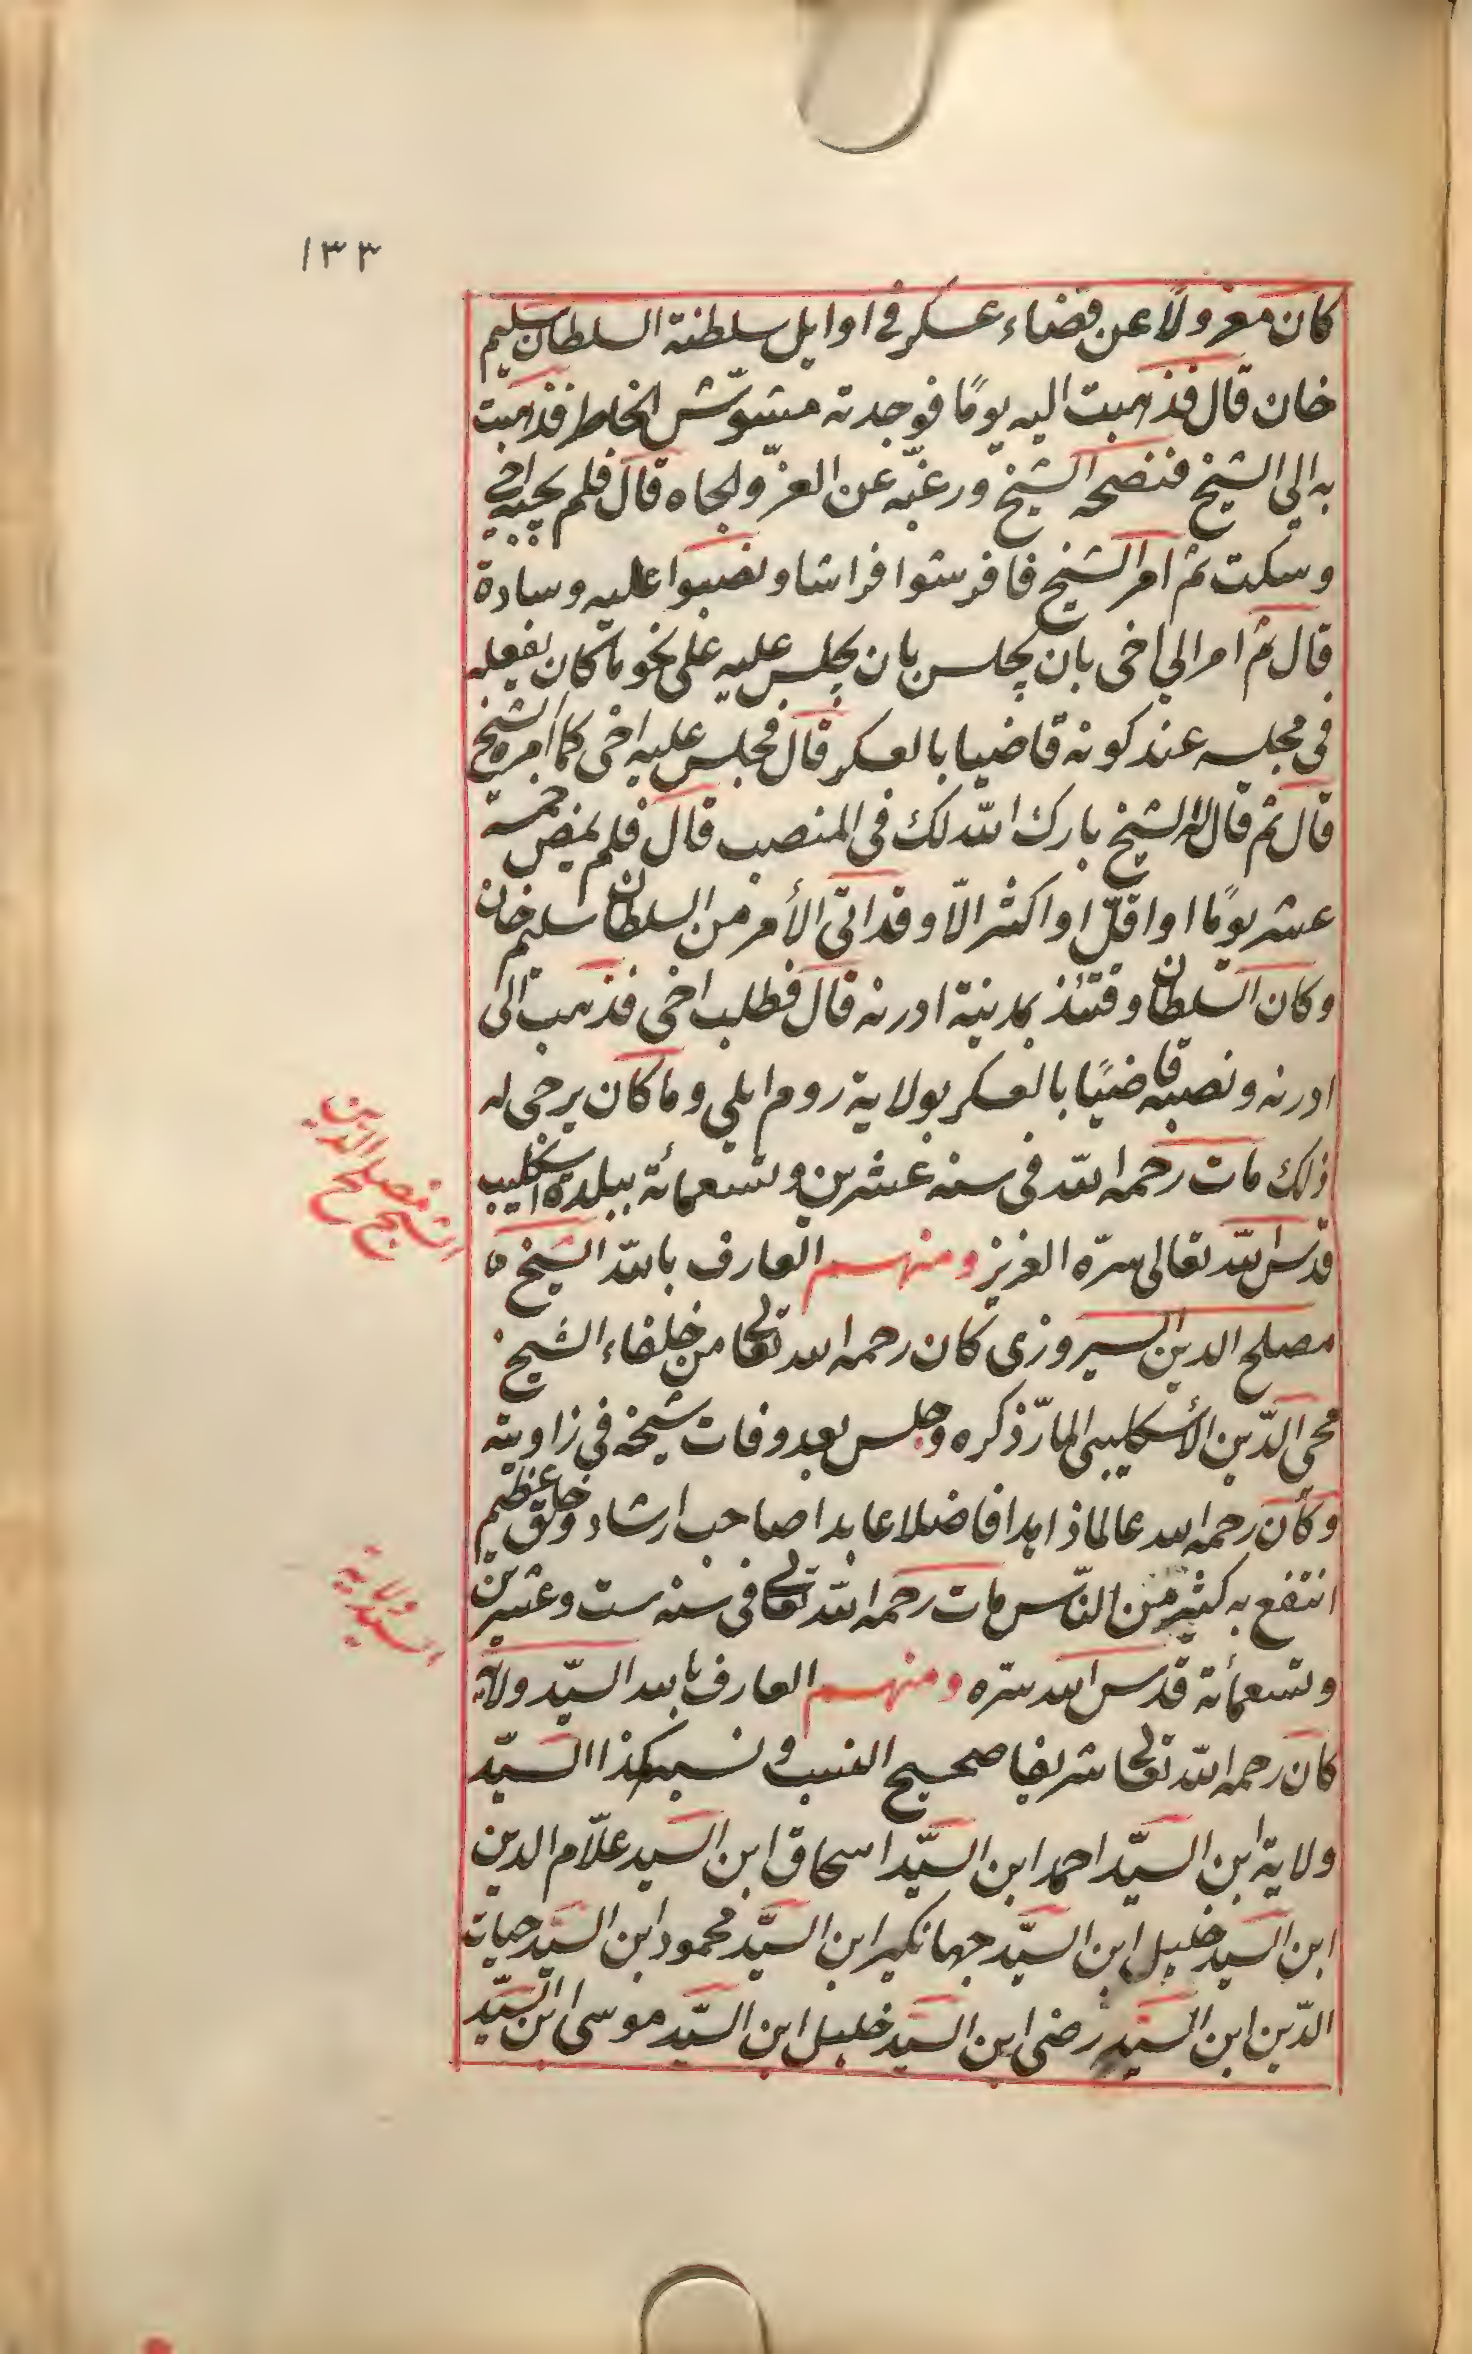 ١٣٣
كان معزولا عن قضاء عسكر فى اوايل سلطنة السلطان سليم
خان قال فذهبت اليه يومًا فوجدته مشوّش الخاطر فذهبت
به الى الشيخ فنصحه الشيخ ورغبّه عن العزّ والجاه قال فلم يجبه اخى
وسكت ثم امر الشيخ فافرشوا فراشا ونصبوا عليه وسادة
قال ثم امر الى اخى بان يجلس بان يجلس عليه على نحو ما كان يفعله
فى مجلسه عند كونه قاضيا بالعسكر قال فجلس عليه اخى كما امره الشيخ
قال ثم قال له الشيخ بارك الله لك فى المنصب قال فلم يمض خمسة
عشر يومًا او اقلّ او اكثر الّا وقد اتى الأمر من السلطان سليم خان
وكان السّلطان وقتئذ بمدينة ادرنه قال فطلب اخى فذهب الى
ادرنه ونصبه قاضيًا بالعسكر بولاية روم ايلى وما كان يرجى له
ذلك مات رحمه الله فى سنه عشرين وتسعمائة ببلدة اسكليب
قدّس الله تعالى سرّه العزيز ومنهم العارف بالله الشيخ
مصلح الدين السيروزى كان رحمه الله تعالى من خلفاء الشيخ
محى الدّين الأسكليبى المارّ ذكره وجلس بعد وفات شيخه فى زاويته
وكان رحمه الله عالما زاهدا فاضلا عابدا صاحب ارشاد وخلق عظيم
انتفع به كثير من النّاس مات رحمه الله تعالى فى سنه ست وعشرين
وتسعمائة قدّس الله سرّه ومنهم العارف بالله السيّد ولاية
كان رحمه الله تعالى شريفا صحيح النسب ونسبه هكذا السيّد
ولاية ابن السيّد احمد ابن السيّد اسحاق ابن السيد علّام الدين
ابن السيد خليل ابن السيّد جهانكير ابن السيّد محمود ابن السيد حيات
الدّين ابن السيد رضى ابن السيد خليل ابن السيّد موسى ابن السيّد
الشيخ مصلح الدين
السيد ولاية